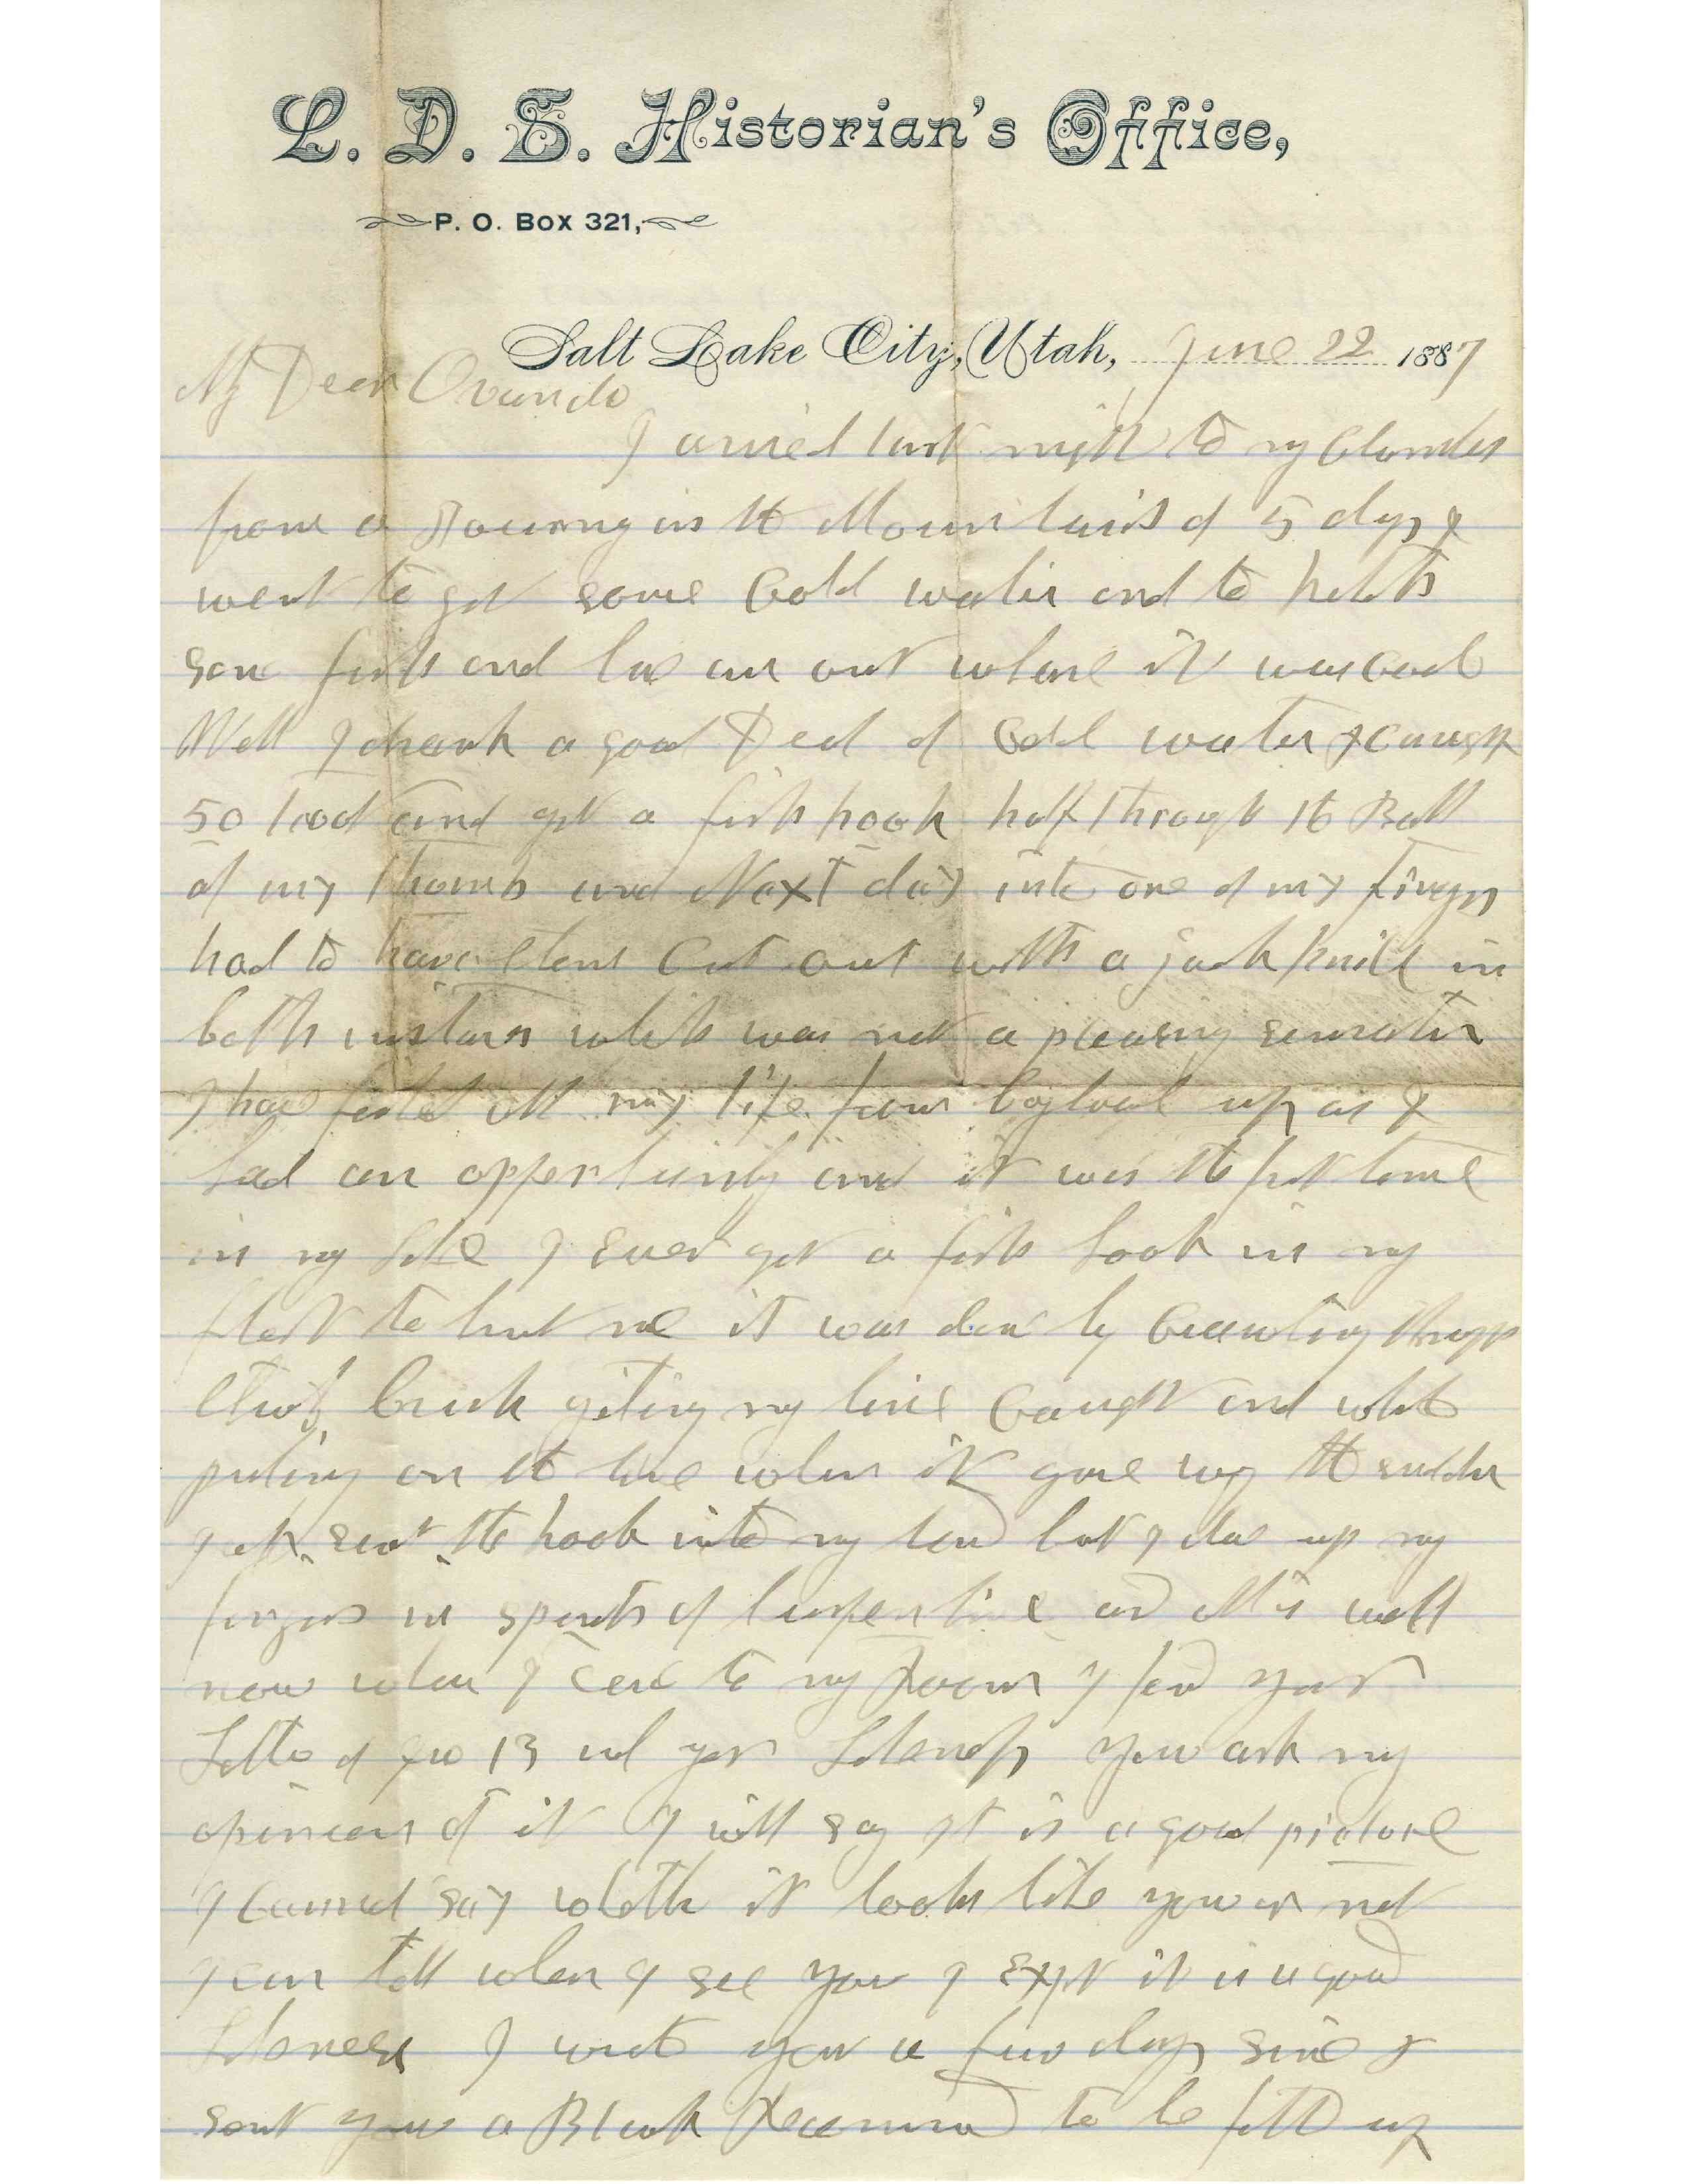 L. D. S. Historian's Office,
P. O. Box 321,
Salt Lake City, Utah, June 22 1887
My Dear Ovando
I arried last night to my
from a Journy in the Mountains of 5 days I
went to get some Cold water and to
some fish and be out where it was Cool
Well I drank a good Deal of Cold water & Caught
50 and got a fish hook half through the Ball
of my Thumb and Next day into one of my fingers
had to have them Cut out with a jack knife in
both which was not a pleasing
I have fished all my life from boyhood up as I
had an oppertunity and it was the first time
in my life I ever got a fish hook in my
flesh to hurt me it was done by through
brush geting my line Caught and while
puling on the line when it gave way the sudden
sent the hook into my hand but I up my
fingers in spirits of turpentine and all is well
now when I Came to my Room I found your
Letter of 13 and your Likeness you ask my
opinion of it I will say it is a good picture
I Cannot say wheth it looks like you or not
I can tell when I see you I expt it is a good
Likeness I wrote you a few days since &
sent you a Blank to be filld up